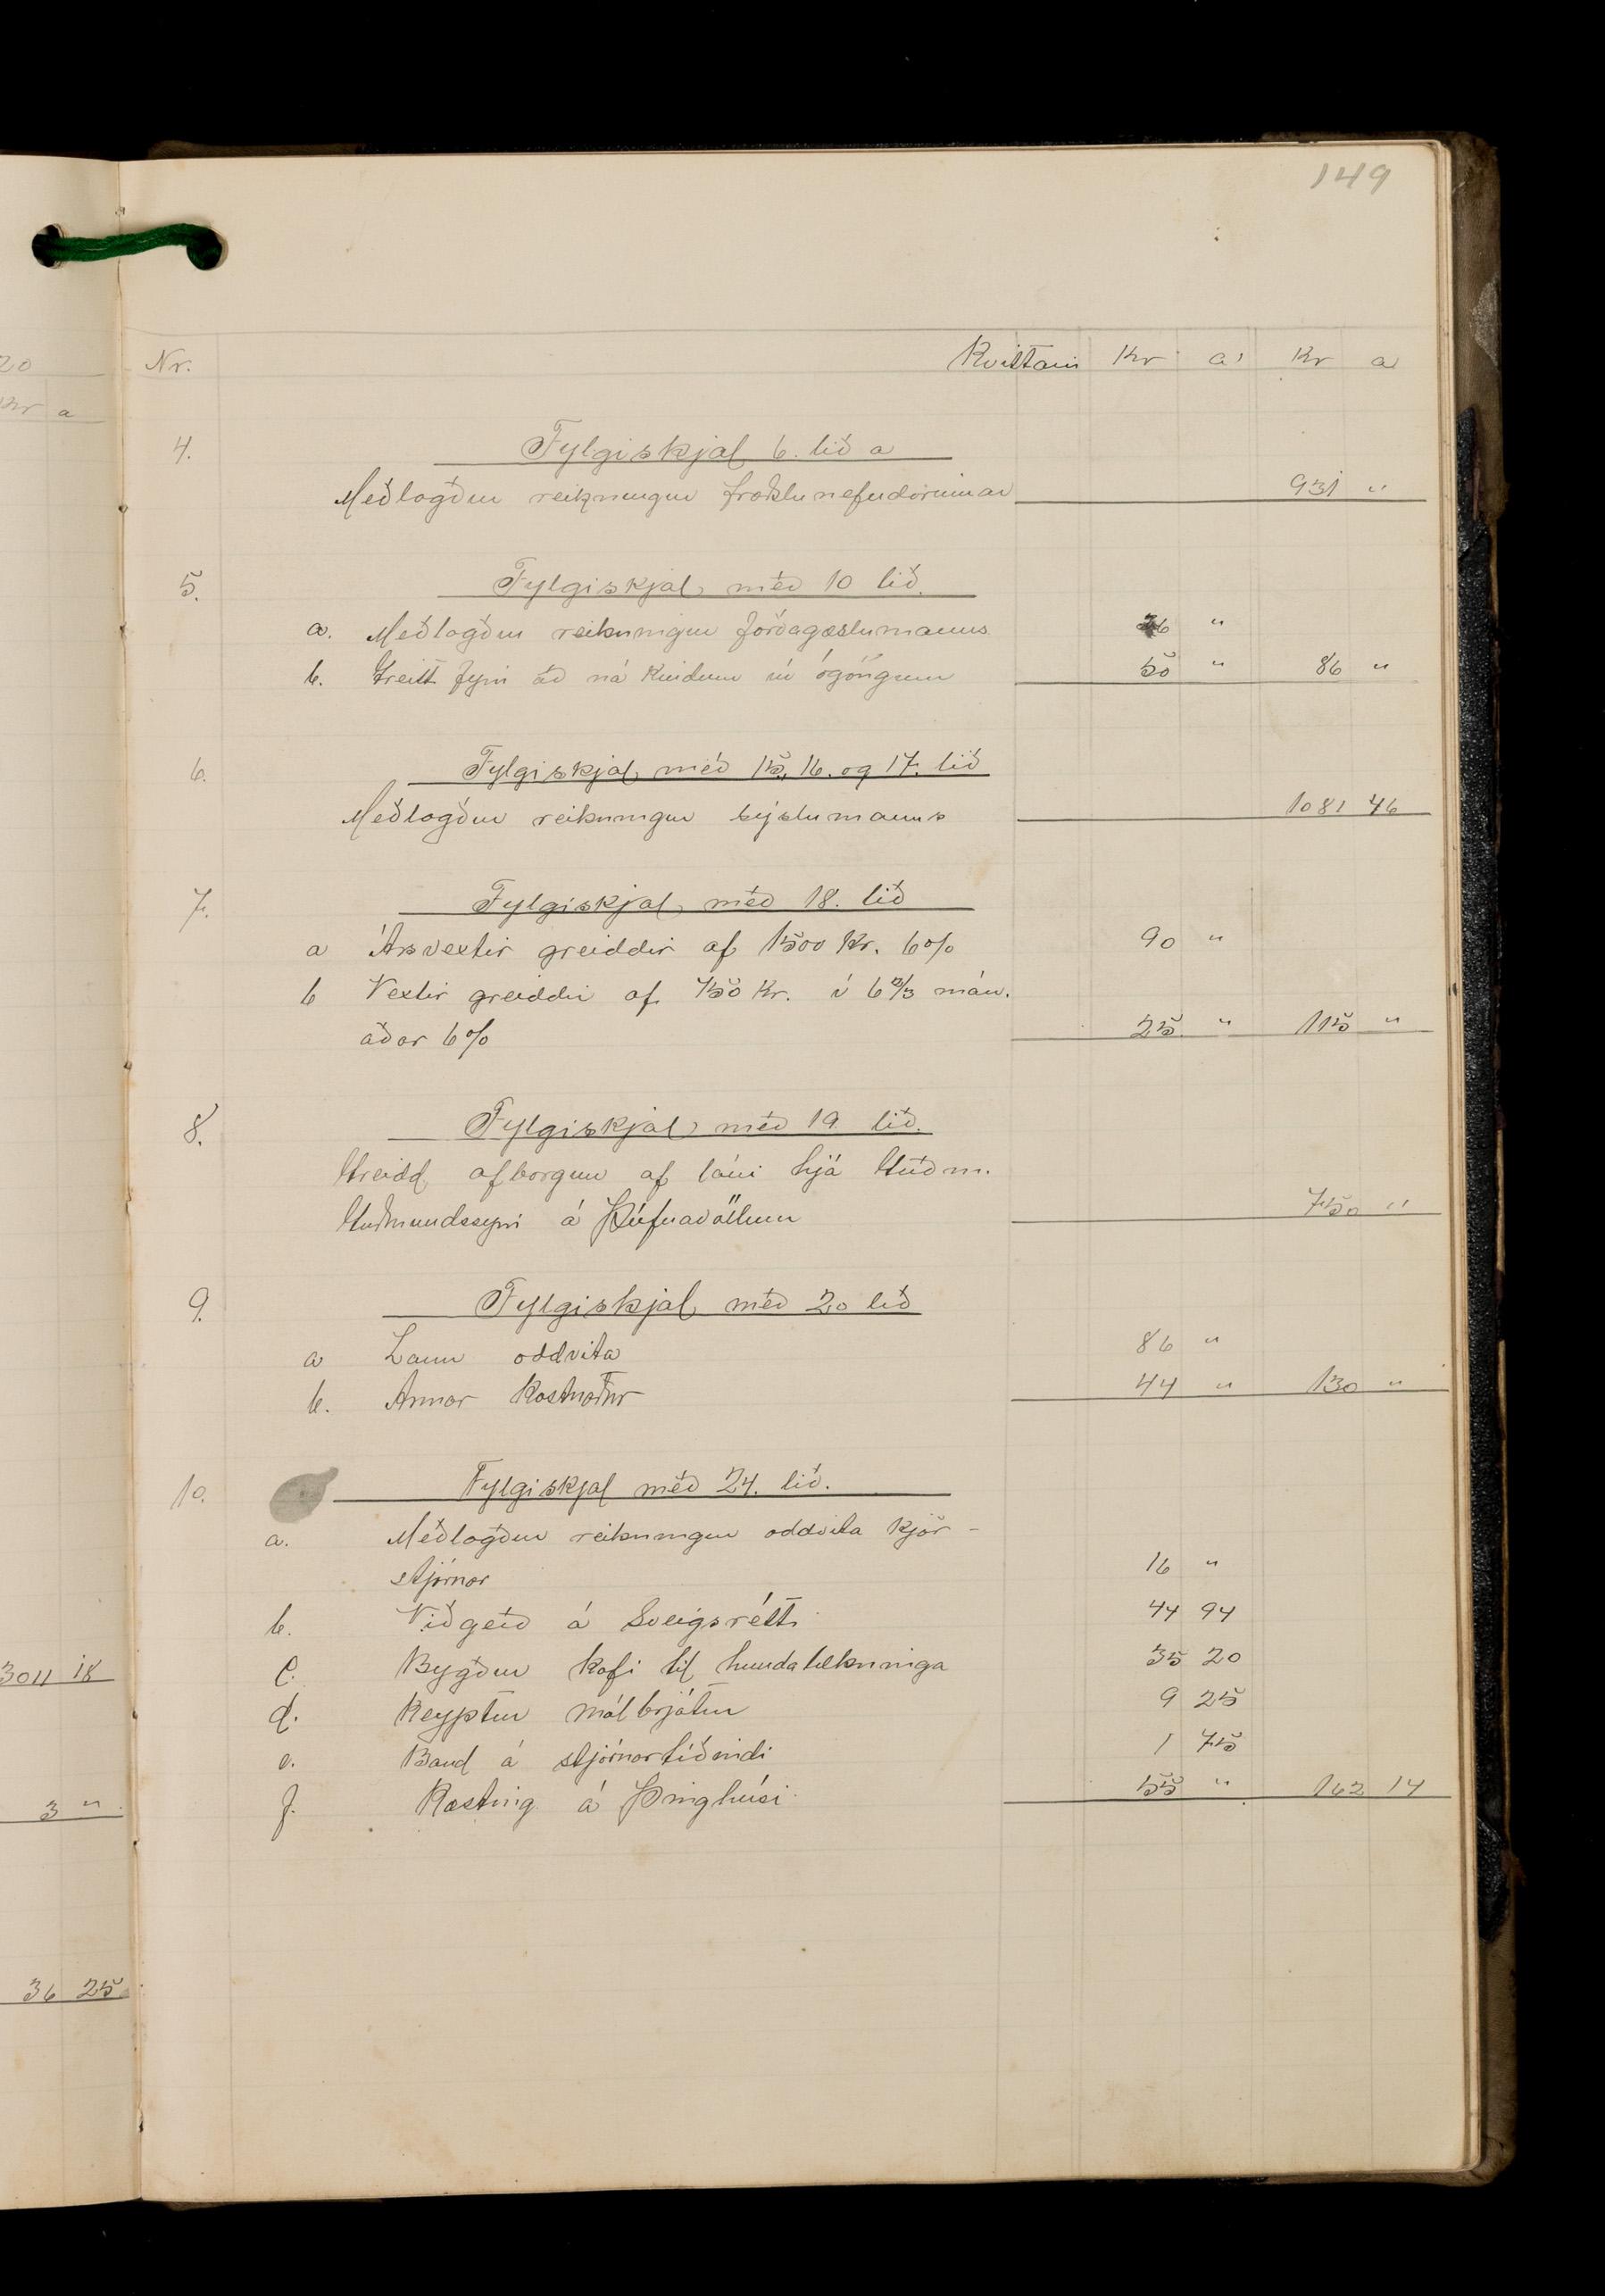 149
20
Kr a
Nr. Kvittani Kr a Kr a
4. Fylgiskjal 6. lið a
Meðlagður reikningur fræðslunefndarinnar 931 "
5. Fylgiskjal með 10 lið.
a. Meðlagður reikningur forðagæslumanns 36 "
b. Greitt fyrir að ná kindum úr ógöngum 50 " 86 "
6. Fylgiskjal með 15, 16. og 17. lið
Meðlagður reikningur sýslumanns 1081 46
7. Fylgiskjal með 18. lið
a Ársvextir greiddir af 1500 Kr. 6% 90 "
b Vextir greiddir af 750 Kr. í 6 2/3 mán.
aðar 6% 25 " 115 "
8. Fylgiskjal með 19 lið.
Greidd afborgun af láni hjá Guðm.
Guðmundssyni á Þúfnavöllum 750 "
9. Fylgiskjal með 20 lið
a Laun oddvita 86 "
b. Annar kostnaður 44 " 130 "
10. Fylgiskjal með 24. lið.
a. Meðlagður reikningur oddvita kjör-
stjórnar 16 "
b. Viðgerð á Sveigsrétt 44 94
c. Bygður kofi til hundalækninga 35 20
d. Keyptur málbrjótur 9 25
e. Band á stjórnartíðindi 1 75
f. Ræsting á Þinghúsi 55 " 162 14
3011 18
3 "
36 25